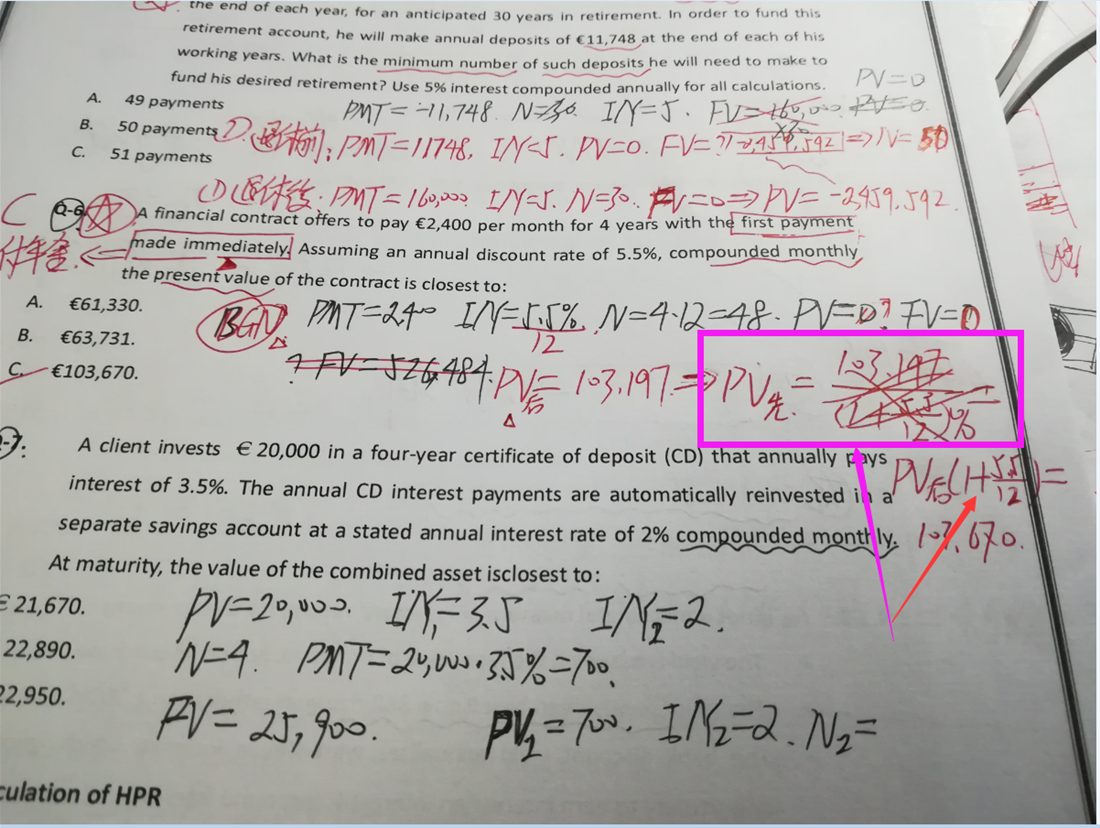 the end of each year, for an anticipated 30 years in retirement. In order to fund this
retirement account, he will make annual deposits of €11,748 at the end of each of his
working years. What is the minimum number of such deposits he will need to make to
fund his desired retirement? Use 5% interest compounded annually for all calculations.
PV=0
A. 49 payments
PMT=-11,748. N=30. I/Y=5. FV=160,000 PV=0.
×30
B. 50 payments
② 退休前: PMT=11748, I/Y=5. PV=0. FV=?1 2,459,592 ⇒ N= 50
C. 51 payments
① 退休后. PMT=160,000 I/Y=5. N=30. FV=0 ⇒ PV= -2459.592.
C
Q-6 A financial contract offers to pay €2,400 per month for 4 years with the first payment
made immediately. Assuming an annual discount rate of 5.5%, compounded monthly
付年金. ←
the present value of the contract is closest to:
A. €61,330.
BGN PMT=2400 I/Y=5.5%/12 N=4·12=48. PV=0? FV=0
B. €63,731.
? FV=526,484.
C. €103,670.
PV后=103.197. ⇒ PV先.= 103.197/(1+5.5/12)%
-7: A client invests € 20,000 in a four-year certificate of deposit (CD) that annually pays
PV后(1+5.5/12)=
interest of 3.5%. The annual CD interest payments are automatically reinvested in a
separate savings account at a stated annual interest rate of 2% compounded monthly.
103,670.
At maturity, the value of the combined asset isclosest to:
€ 21,670.
PV=20,000. I/Y₁=3.5 I/Y₂=2.
22,890.
N=4. PMT=20,000·3.5%=700.
22,950.
FV= 25,900. PV₂=700. I/Y₂=2. N₂=
culation of HPR